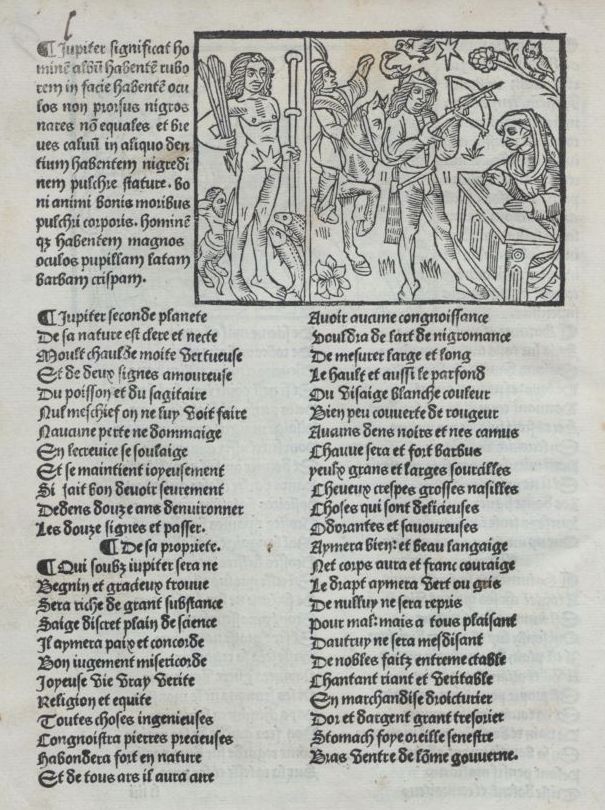 ¶ Jupiter significat ho
minē albū habentē rubo
rem in facie habentē ocu
los non prorsus nigros
nares nō equales et bre
ues caluū in aliquo den
tium habentem nigredi
nem pulchre stature. bo
ni animi bonis moribus
pulchri corporis. hominē
qz habentem magnos
oculos pupillam latam
barbam crispam.
¶ Jupiter seconde planete
De sa nature est clere et necte
Moult chaulde moite vertueuse
Et de deux signes amoureuse
Du poisson et du sagitaire
Nul meschief on ne luy voit faire
Naucune perte ne dommaige
En lecreuice se soulaige
Et se maintient ioyeusement
Si fait bon deuoir seurement
Dedens douze ans denuironner
Les douze signes et passer.
¶ De sa propriete.
¶ Qui soubz iupiter sera ne
Begnin et gracieux trouue
Sera riche de grant substance
Saige discret plain de science
Il aymera paix et concorde
Bon iugement misericorde
Joyeuse vie vray verite
Religion et equite
Toutes choses ingenieuses
Congnoistra pierres precieuses
Habondera fort en nature
Et de tous ars il aura cure
Auoir aucune congnoissance
Vouldra de lart de nigromance
De mesurer large et long
Le hault et aussi le parfond
Ou visaige blanche couleur
Bien peu couuerte de rougeur
Aucuns dens noirs et nes camus
Chauue sera et fort barbus
yeulx grans et larges sourcilles
Cheueux crespes grosses nasilles
Choses qui sont delicieuses
Odorantes et sauoureuses
Aymera bien: et beau langaige
Net corps aura et franc couraige
Le drapt aymera vert ou gris
De nulluy ne sera repris
Pour mal: mais a tous plaisant
Dautruy ne sera mesdisant
De nobles faitz entremectable
Chantant riant et veritable
En marchandise droicturier
Dor et dargent grant tresorier
Stomach foye oreille senestre
Bras ventre de lōme gouuerne.